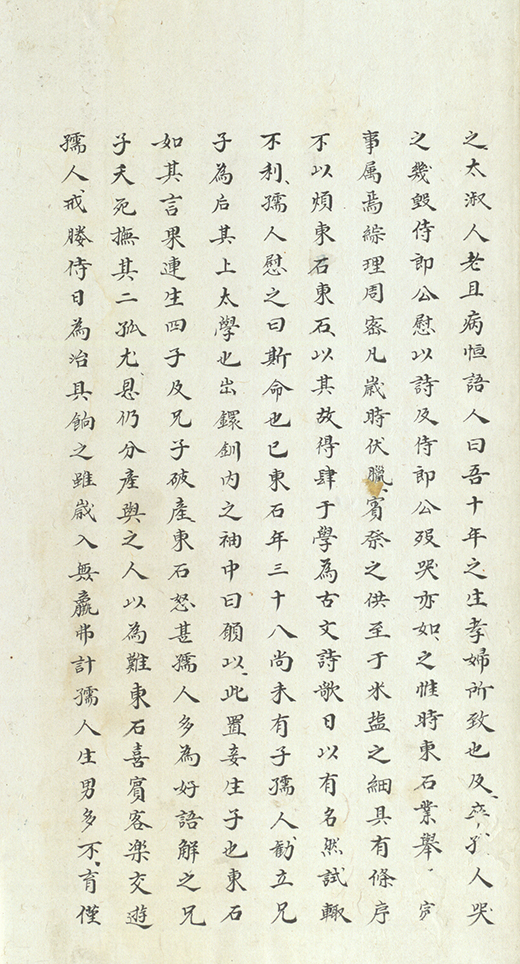 之太淑人老且病恒語人曰吾十年之生孝婦所致也及卒孺人哭
之幾毀侍郎公慰以詩及侍郎公歿哭亦如之惟時東石業舉家
事属焉綜理周密凡歲時伏臘賓祭之供至于米盐之細具有條序
不以煩東石東石以其故得肆于學為古文詩歌日以有名然試輒
不利孺人慰之曰斯命也已東石年三十八尚未有子孺人勸立兄
子為后其上太學也出鐶釧内之袖中曰願以此置妾生子也東石
如其言果連生四子及兄子破產東石怒甚孺人多為好語解之兄
子夭死撫其二孤尤恩仍分產與之人以為難東石喜賓客樂交遊
孺人戒媵侍日為治具餉之雖歲入無贏弗計孺人生男多不育僅